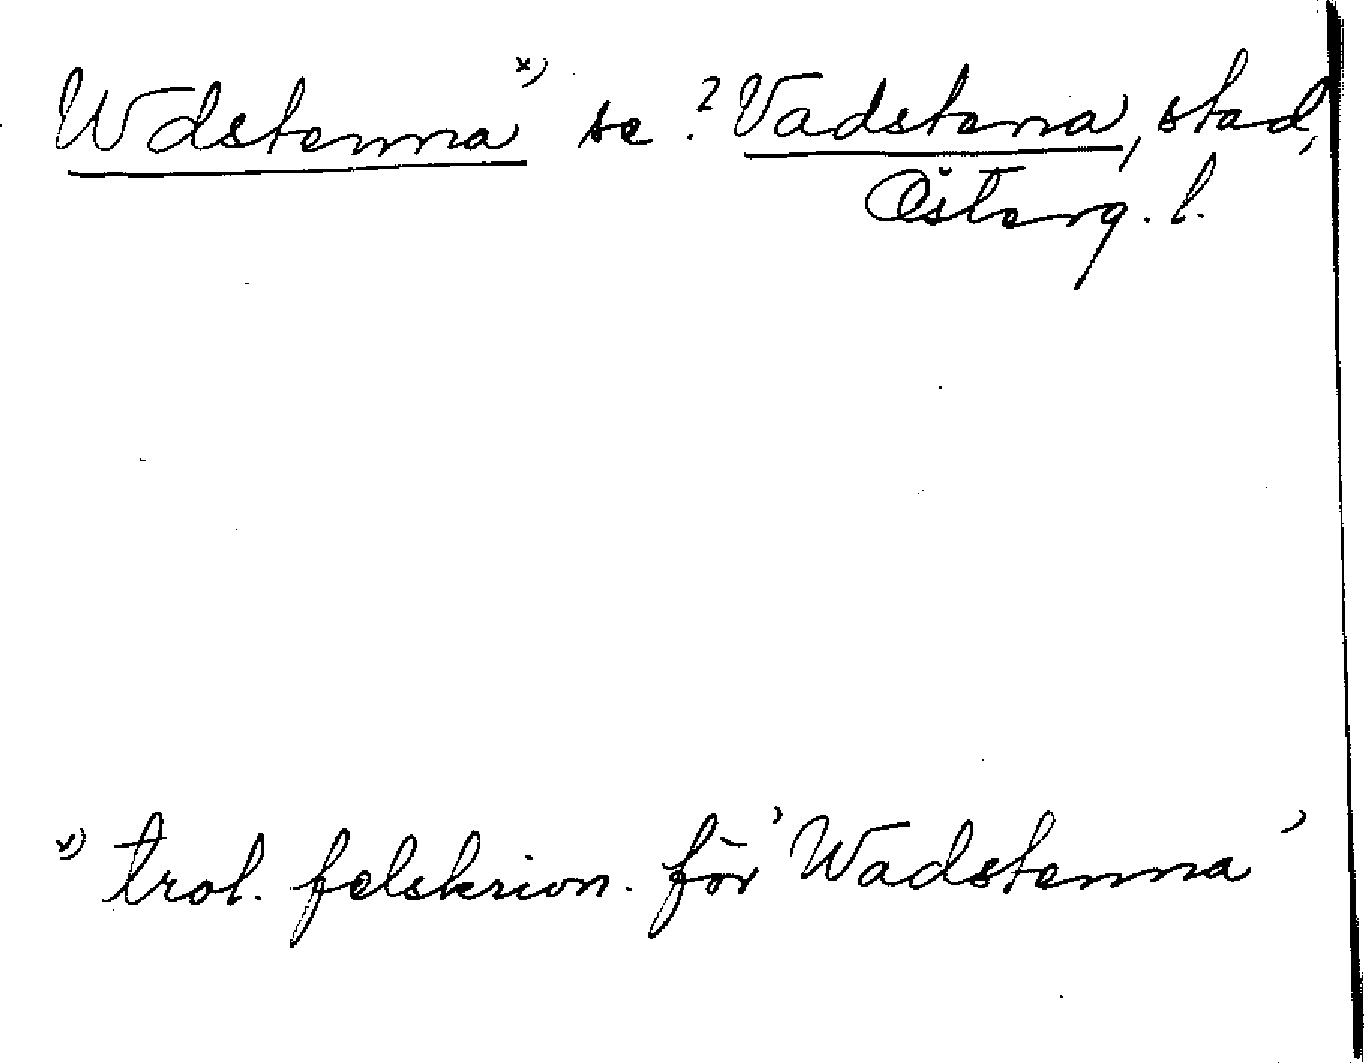 Wdstenna x) se ? Vadstena, stad,
Österg. l.
x) trol. felskrivn. för 'Wadstenna'